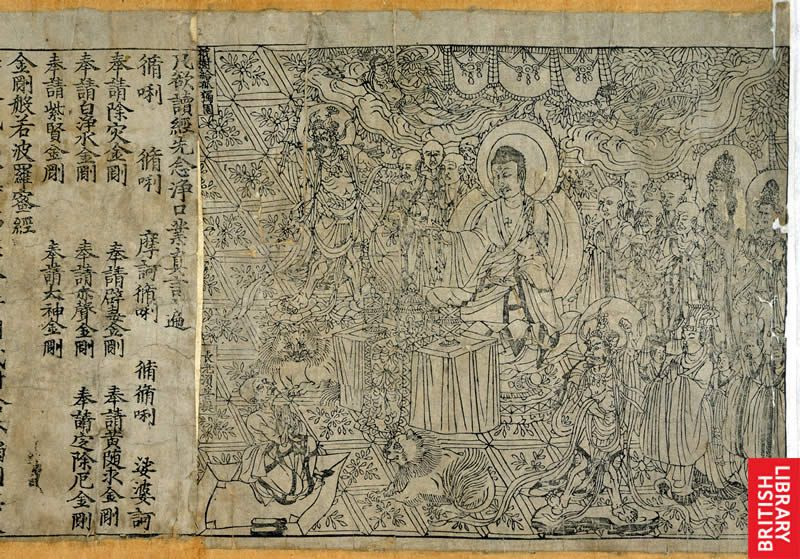 祇樹給孤獨園
凡欲讀經先念淨口業真言遍
脩唎 脩唎 摩訶脩唎 脩脩唎 娑婆訶
奉請除灾金剛 奉請辟毒金剛 奉請黃隨求金剛
奉請白淨水金剛 奉請赤聲金剛 奉請定除厄金剛
奉請紫賢金剛 奉請大神金剛
金剛般若波羅蜜經
BRITISH
LIBRARY